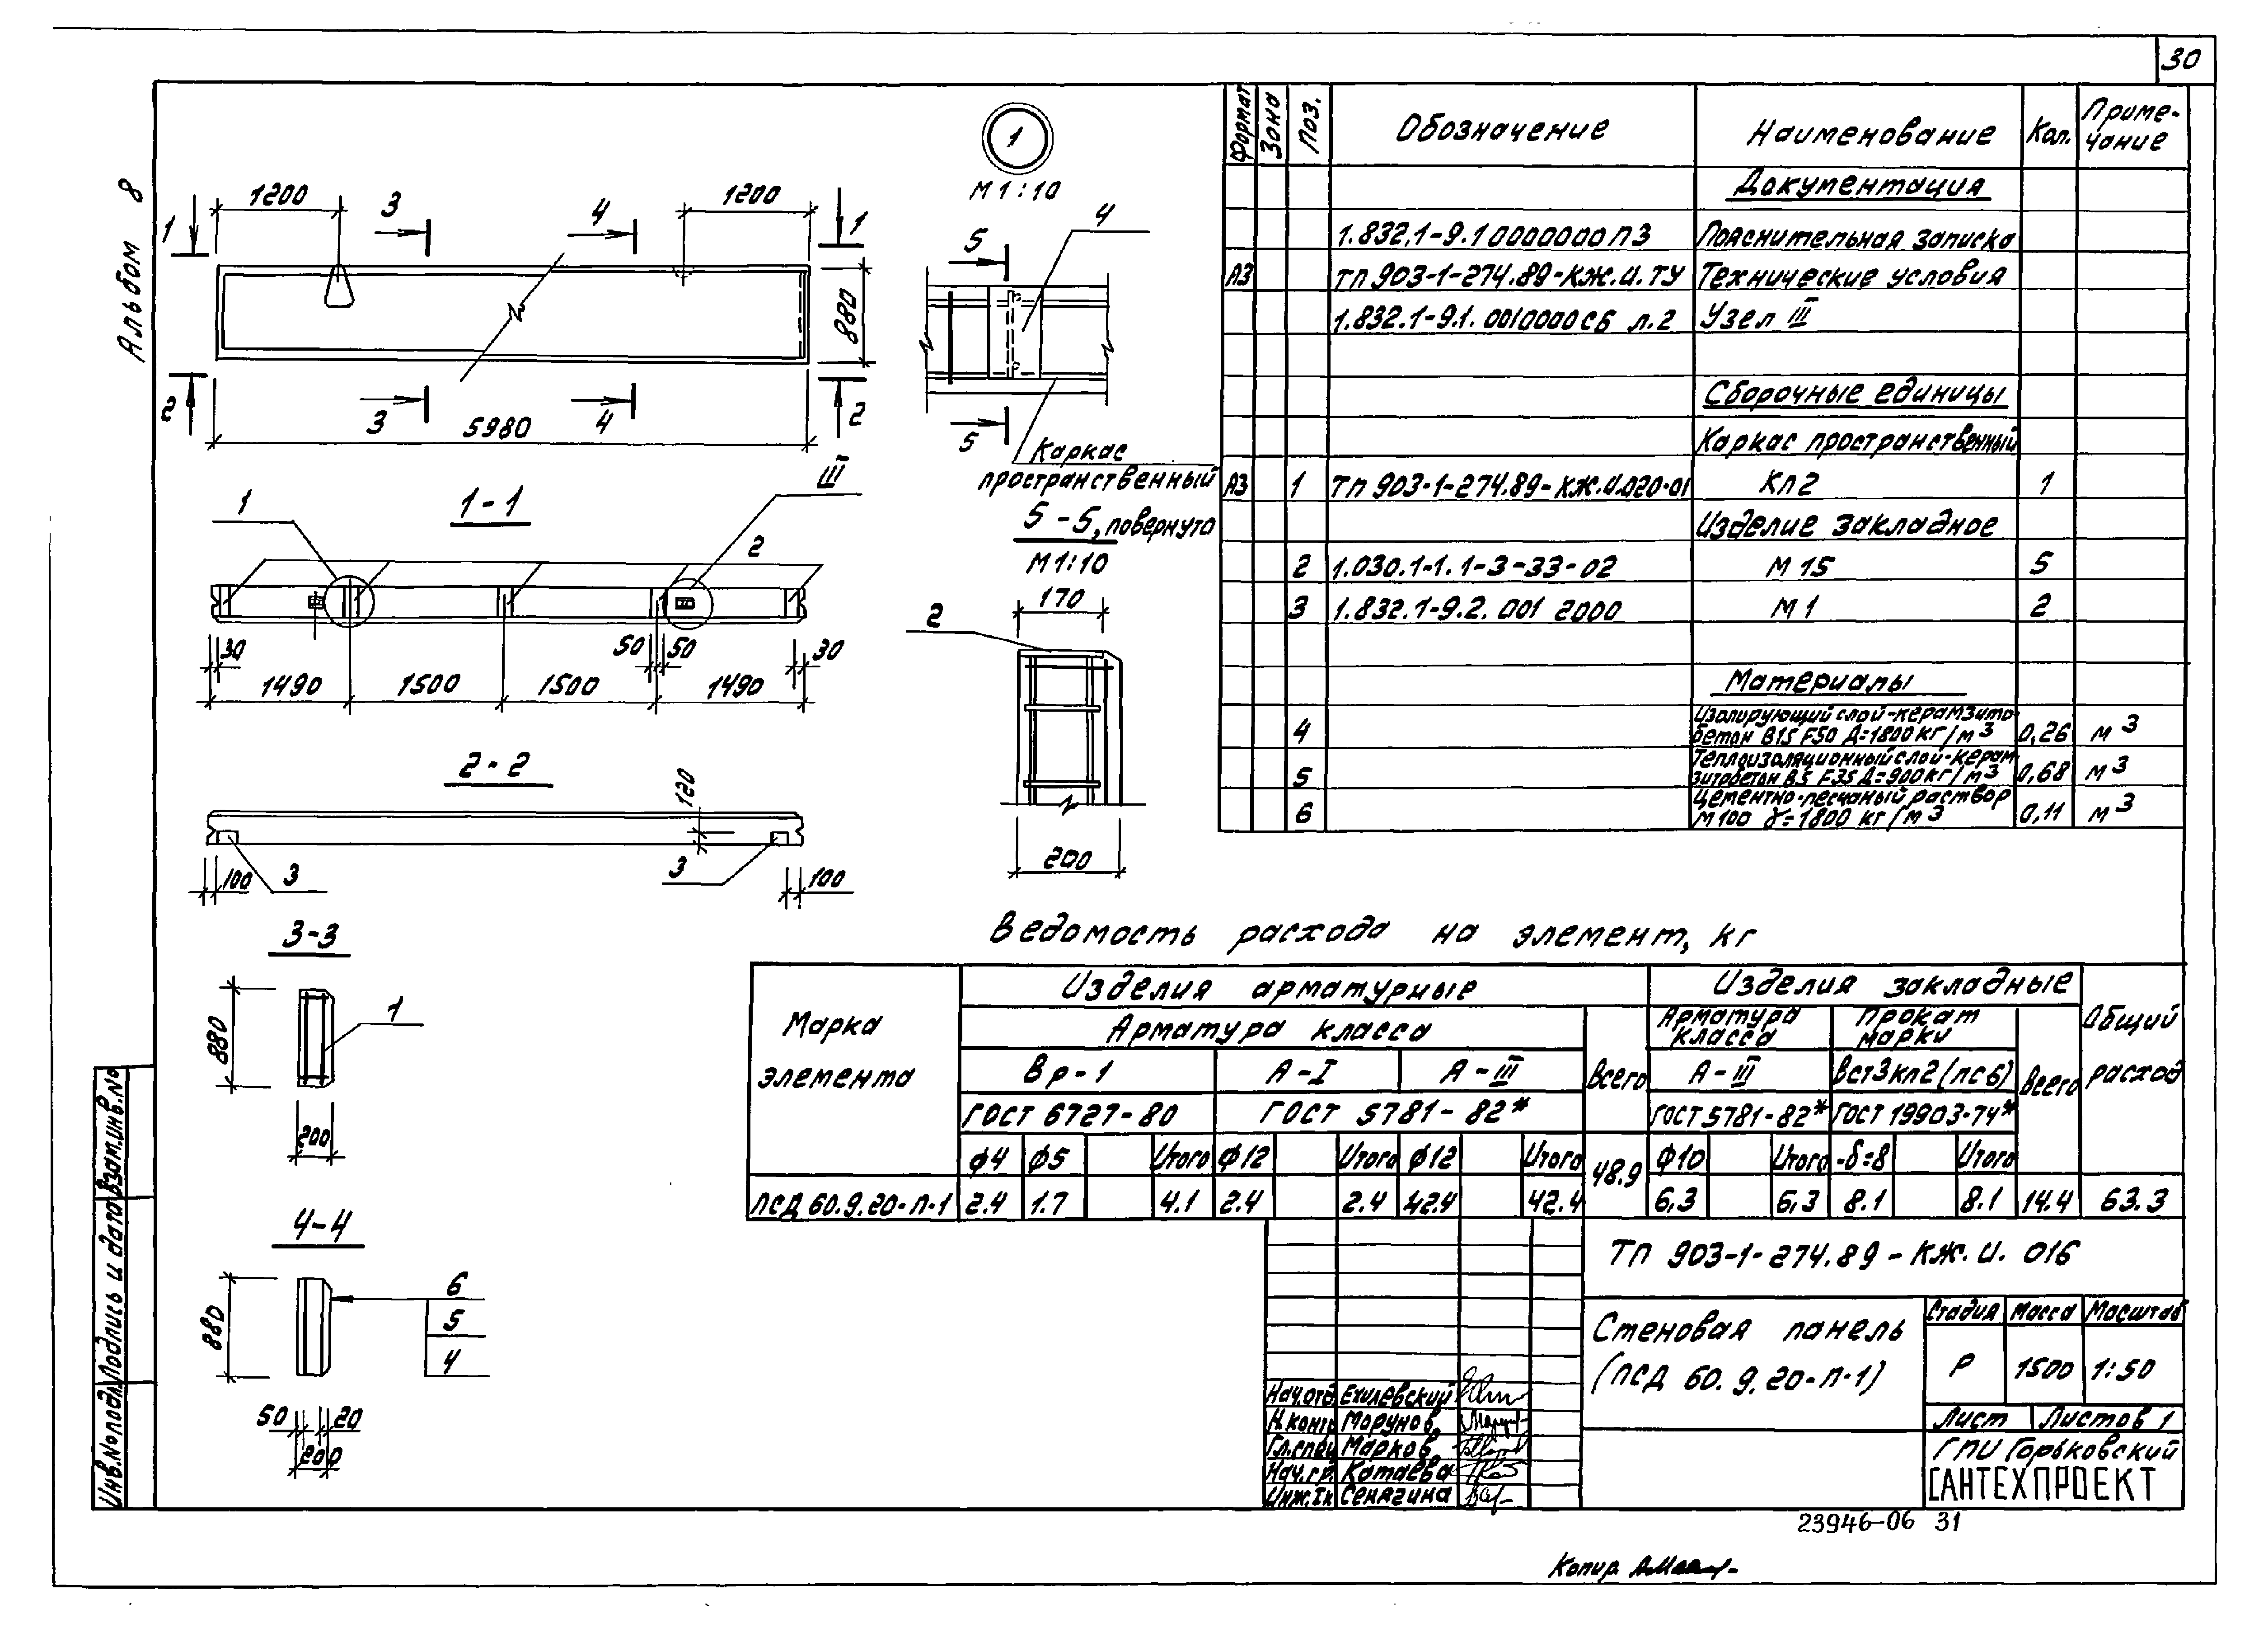 30
Альбом 8
1200
1200
1
3
4
1
880
2
3
4
2
5980
1
М 1:10
5
4
5
Каркас
пространственный
1-1
1
III
2
30
50
50
30
1490
1500
1500
1490
5-5, повернуто
М 1:10
170
2
200
2-2
120
100
3
3
100
3-3
880
1
200
4-4
880
6
5
4
50
20
200
Формат Зона Поз. Обозначение Наименование Кол. Приме-
чание
Документация
1.832.1-9.10000000ПЗ Пояснительная записка
А3 ТП 903-1-274.89-КЖ.И.ТУ Технические условия
1.832.1-9.1.0010000СБ л.2 Узел III
Сборочные единицы
Каркас пространственный
А3 1 ТП 903-1-274.89-КЖ.И.020-01 Кп2 1
Изделие закладное
2 1.030.1-1.1-3-33-02 М 15 5
3 1.832.1-9.2.001 2000 М 1 2
Материалы
4 Изолирующий слой-керамзито-
бетон В15 F50 Д=1800 кг/м3 0,26 м3
5 Теплоизоляционный слой-керам-
зитобетон В5 F35 Д=900кг/м3 0,68 м3
6 Цементно-песчаный раствор
М100 γ=1800 кг/м3 0,11 м3
Ведомость расхода на элемент, кг
Марка элемента
Изделия арматурные
Изделия закладные
Общий расход
Арматура класса
Всего
Арматура класса
Прокат марки
Всего
Вр-1 А-I А-III А-III Вст3кп2(пс6)
ГОСТ 6727-80 ГОСТ 5781-82* ГОСТ 5781-82* ГОСТ 19903-74*
ф4 ф5 Итого ф12 Итого ф12 Итого ф10 Итого -δ=8 Итого
ПСД 60.9.20-П-1 2.4 1.7 4.1 2.4 2.4 42.4 42.4 48.9 6,3 6,3 8.1 8.1 14.4 63.3
ТП 903-1-274.89-КЖ.И. 016
Стеновая панель
(ПСД 60.9.20-П-1)
Стадия Масса Масштаб
Р 1500 1:50
Лист Листов 1
ГПИ Горьковский
САНТЕХПРОЕКТ
Нач.отд. Ехилевский
Н.контр. Морунов
Гл.спец. Марков
Нач.гр. Катаева
Инж.Iк Сенягина
Инв.№подл. Подпись и дата Взам.инв.№
23946-06 31
Копир.